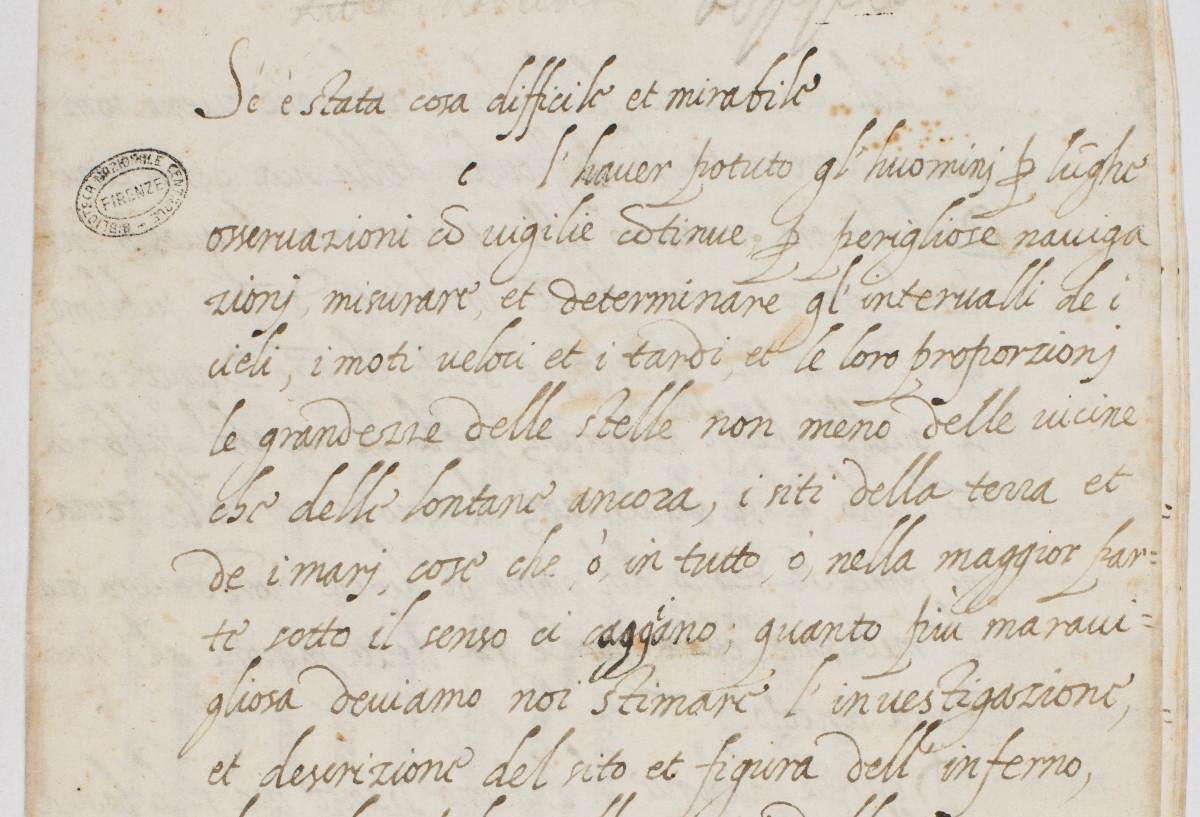 Se è stata cosa difficile et mirabile
l'hauer potuto gl'huominj ꝑ lūghe
osseruazioni cō uigilie cōtinue, ꝑ perigliose nauiga
zionj, misurare, et determinare gl'interualli de i
cieli, i moti ueloci et i tardi, et le loro proporzionj
le grandezze delle stelle non meno delle uicine
che delle lontane ancora, i siti della terra et
de i marj, cose che ò, in tutto, ò, nella maggior par=
te sotto il senso ci caggiano; quanto più maraui=
gliosa deuiamo noi stimare l'inuestigazione,
et descrizione del sito et figura dell'inferno,
BIBLIOTECA NAZIONALE CENTRALE
FIRENZE